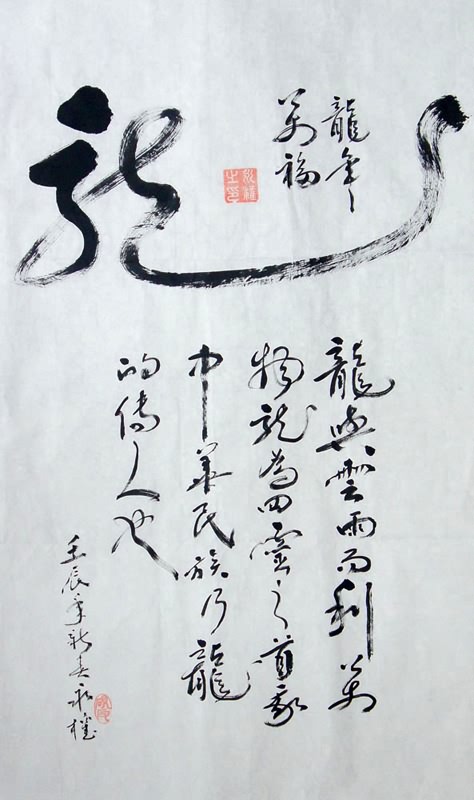 龍
龍年
萬福
龍興雲雨而利萬
物龍為四靈之首我
中華民族乃龍
的傳人也
壬辰年新春永權